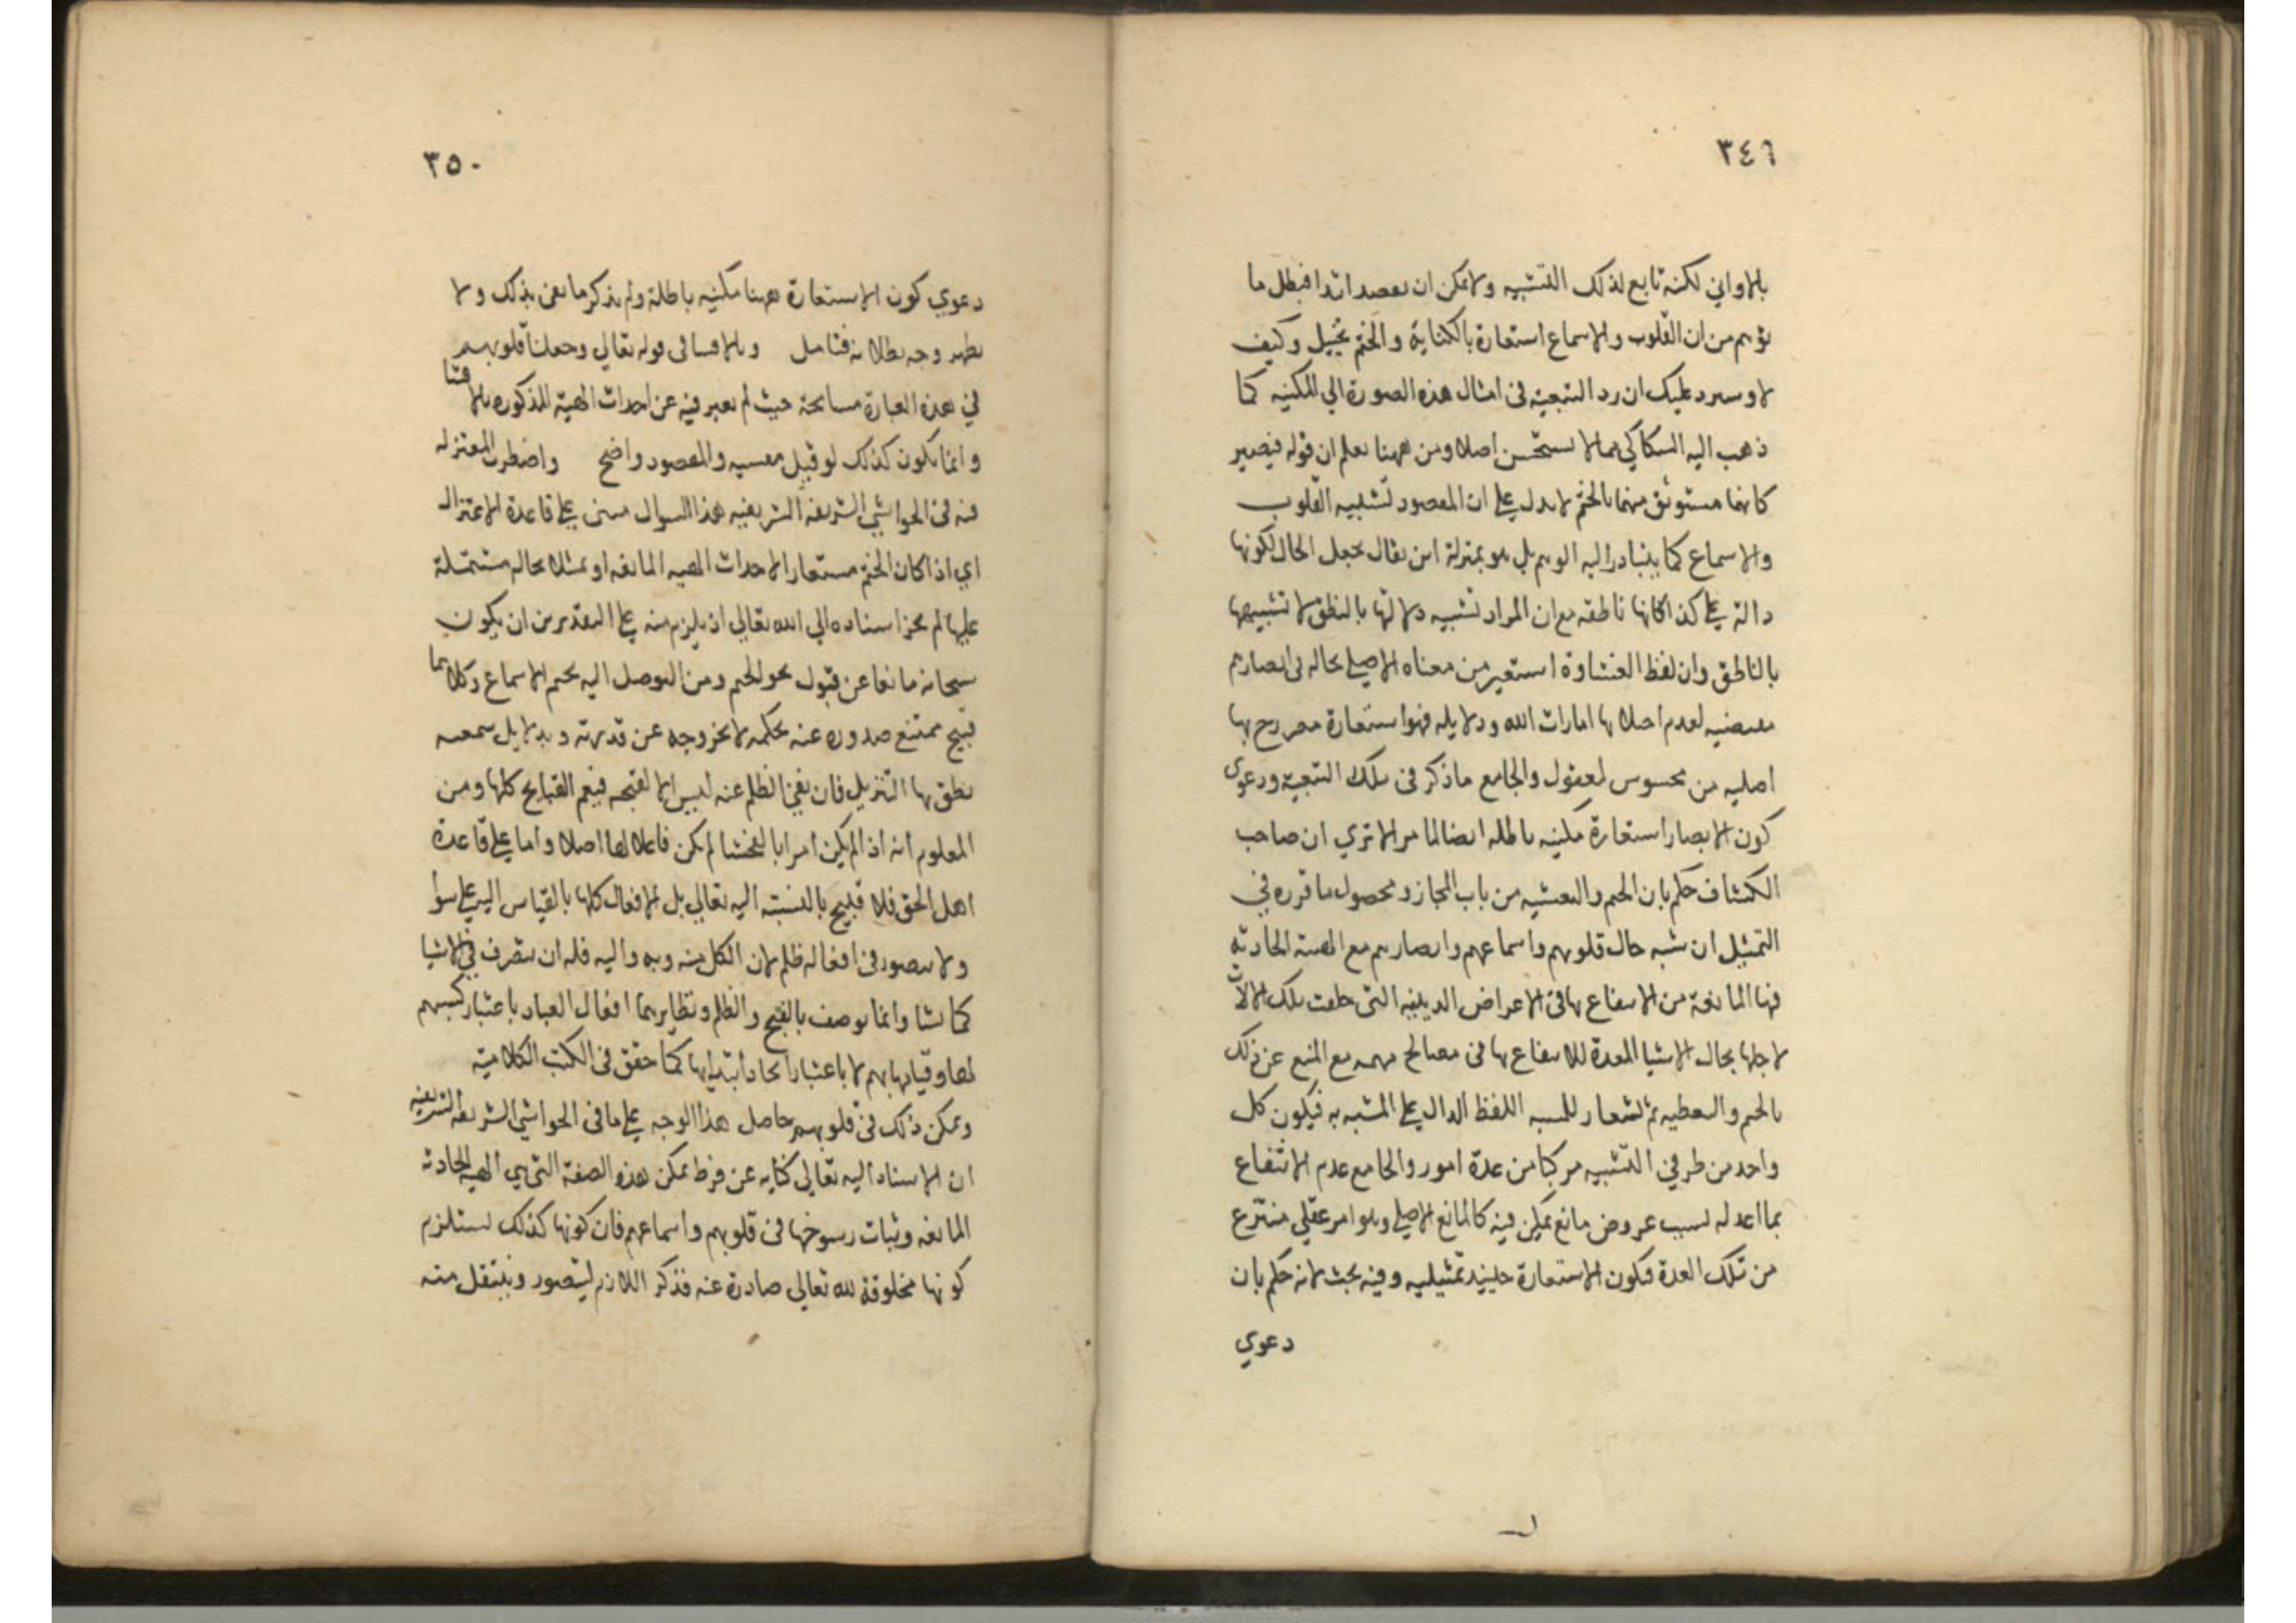 ٣٤٦
بالاواني لكنه تابع لذلك التشبيه ولا يمكن ان يقصد ابتدا فبطل ما
توهم من ان القلوب والاسماع استعارة بالكناية والختم تخييل وكيف
لا وسيرد عليك ان رد التبعية في امثال هذه الصورة الي المكنيه كما
ذهب اليه السكاكي مما لا يستحسن اصلا ومن ههنا يعلم ان قوله فيصير
كانها مستوثق منها بالختم لا يدل علي ان المقصود تشبيه القلوب
والاسماع كما يتبادر اليه الوهم بل هو بمنزلة ان يقال نجعل الحال لكونها
دالة علي كذا كانها ناطقه مع ان المراد تشبيه دلالتها بالنطق لا تشبيهها
بالناطق وان لفظ الغشاوة استعير من معناه الاصلي لحاله في ابصارهم
مقتضيه لعدم اجتلائها امارات الله ودلايله فهو استعارة مصرح بها
اصليه من محسوس لمعقول والجامع ما ذكر في تلك التبعيه ودعوي
كون الابصار استعارة مكنيه باطله ايضا لما مر الا تري ان صاحب
الكشاف حكم بان الختم والتغشيه من باب المجاز ومحصول ما قرره في
التمثيل ان شبه حال قلوبهم واسماعهم وابصارهم مع الهيئة الحادثة
فيها المانعة من الانتفاع بها في الاعراض الدينيه التي خلقت تلك الالات
لاجلها بحال الاشيا المعدة للانتفاع بها في مصالح مهمه مع المنع عن ذلك
بالختم والتغطيه ثم استعار للمشبه اللفظ الدال علي المشبه به فيكون كل
واحد من طرفي التشبيه مركبا من عدة امور والجامع عدم الانتفاع
بما اعد له بسبب عروض مانع يمكن فيه كالمانع الاصلي وهو امر عقلي منتزع
من تلك العدة فتكون الاستعارة حينيذ تمثيليه وفيه بحث لانه حكم بان
دعوي
٣٥٠
دعوي كون الاستعارة ههنا مكنيه باطلة ولم يذكر ما يعني بذلك ولا
يظهر وجه بطلانه فتامل وبالاقسا في قوله تعالي وجعلنا قلوبهم
في هذه العبارة مسامحة حيث لم يعبر فيه عن احداث الهيئة المذكوره بالاقسا
وانما يكون كذلك لو قيل مقسيه والمقصود واضح واضطرب المعتزله
فيه في الحواشي الشريفه الشريفيه هذا السوال مبني علي قاعدة الاعتزال
اي اذا كان الختم مستعارا لاحداث الهييه المانعه او ممثلا بحاله مشتملة
عليها لم يجز اسناده الي الله تعالي اذ يلزم منه علي التقديرين ان يكون
سبحانه مانعا عن قبول الحق بختم القلوب ومن التوصل اليه بختم الاسماع وكلاهما
قبيح ممتنع صدوره عنه بحكمه لا بخروجه عن قدرته وبدلايل سمعيه
نطق بها التنزيل فان نفي الظلم عنه ليس الا لقبحه فيعم القبايح كلها ومن
المعلوم انه اذا لم يكن امرا بالفحشا لم يكن فاعلا لها اصلا واما علي قاعدة
اهل الحق فلا قبيح بالنسبة اليه تعالي بل الافعال كلها بالقياس اليه علي سوا
ولا يتصور في افعاله ظلم لان الكل منه وبه واليه فله ان يتصرف في الاشيا
كما يشا وانما يوصف بالقبح والظلم ونظايرهما افعال العباد باعتبار كسبهم
لها وقيامها بهم لا باعتبار ايجاد ابتدايها كما حقق في الكتب الكلامية
ويمكن ذلك في قلوبهم حاصل هذا الوجه علي ما في الحواشي الشريفه الشريفيه
ان الاسناد اليه تعالي كنايه عن فرط تمكن هذه الصفة التي هي الهييه الحادثه
المانعه وثبات رسوخها في قلوبهم واسماعهم فان كونها كذلك يستلزم
كونها مخلوقة لله تعالي صادرة عنه فذكر اللازم ليتصور وينتقل منه